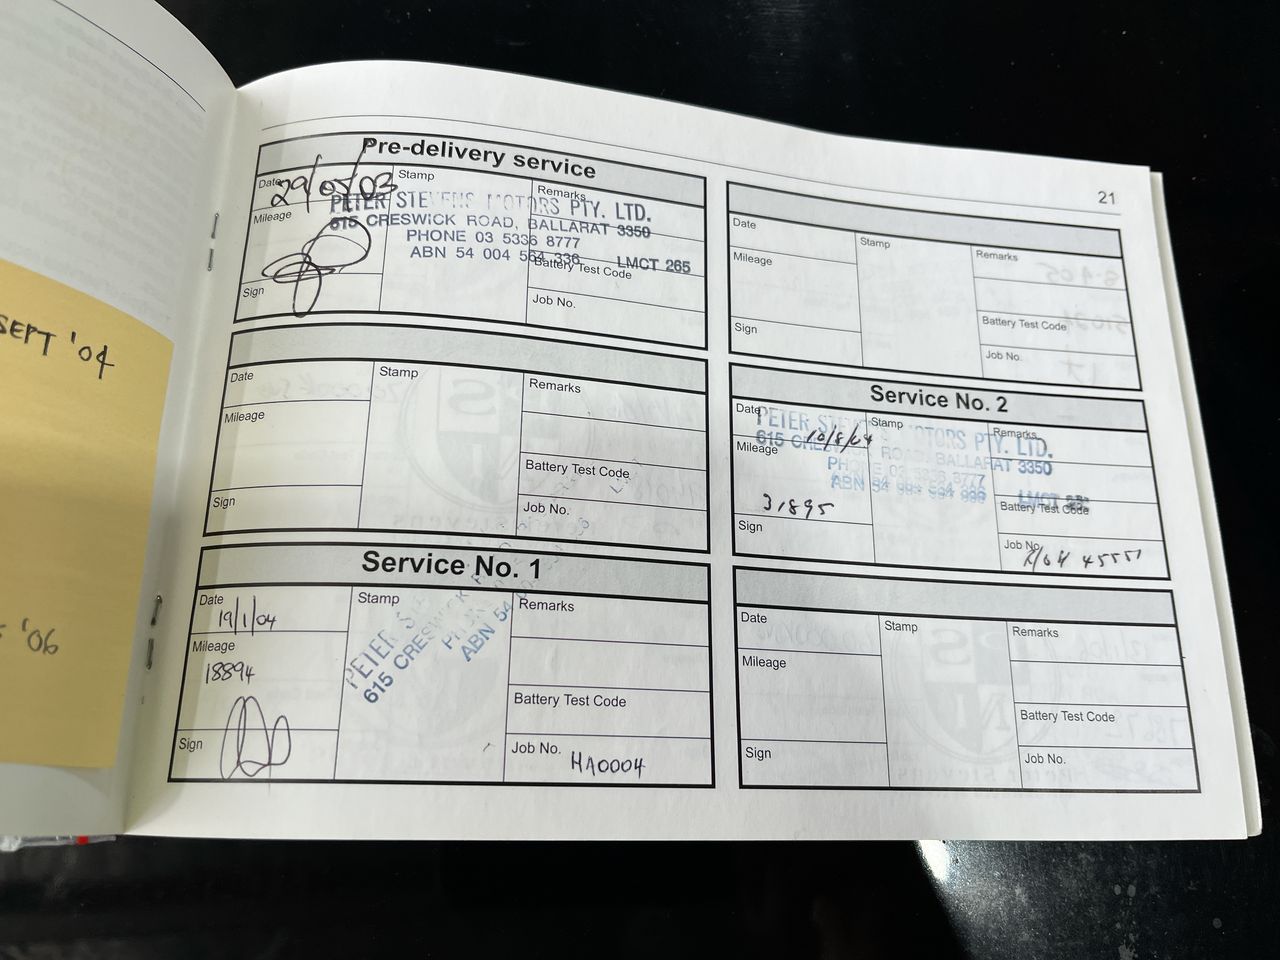 SEPT '04
'06
21
Pre-delivery service
Date 29/05/03
Stamp
Remarks
PETER STEVENS MOTORS PTY. LTD.
615 CRESWICK ROAD, BALLARAT 3350
PHONE 03 5336 8777
ABN 54 004 564 336 LMCT 265
Mileage
Battery Test Code
Sign
Job No.
Date
Stamp
Remarks
Mileage
Battery Test Code
Sign
Job No.
Service No. 1
Date
19/1/04
Stamp
Remarks
Mileage
18894
PETER
615 CRESWICK
ABN 54
Battery Test Code
Sign
Job No.
HA0004
Date
Stamp
Remarks
Mileage
Battery Test Code
Sign
Job No.
Service No. 2
Date
10/8/04
Stamp
Remarks
PETER STEVENS MOTORS PTY. LTD.
615 CRESWICK ROAD, BALLARAT 3350
Mileage
31895
Battery Test Code
Sign
Job No.
Date
Stamp
Remarks
Mileage
Battery Test Code
Sign
Job No.